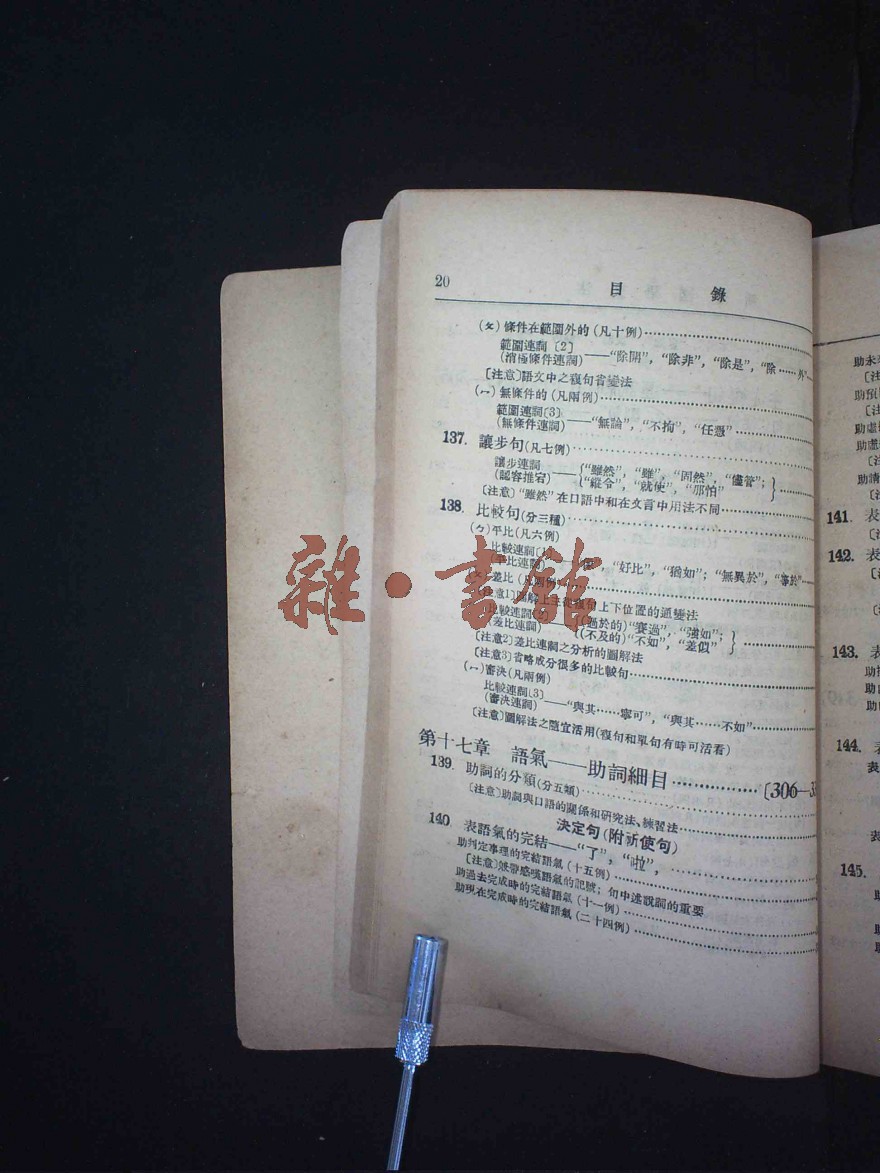 20
目 錄
(ㄆ) 條件在範圍外的 (凡十例)
範圍連詞〔2〕
(消極條件連詞) ——“除開”, “除非”, “除是”, “除……外”
〔注意〕語文中之複句省變法
(ㄇ) 無條件的 (凡兩例)
範圍連詞〔3〕
(無條件連詞) ——“無論”, “不拘”, “任憑”
137. 讓步句 (凡七例)
讓步連詞 ——{“雖然”, “雖”, “固然”, “儘管”;
(認容推宕) {“縱令”, “就使”, “那怕” }
〔注意〕“雖然”在口語中和在文言中用法不同
138. 比較句 (分三種)
(ㄅ) 平比 (凡六例)
比較連詞
(平比連詞) “好比”, “猶如”; “無異於”, “等於”
(ㄆ) 差比 (凡兩例)
〔注意1〕圖解上主從複句上下位置的通變法
比較連詞〔2〕 {(過於的) “賽過”, “強如”;
(差比連詞) {(不及的) “不如”, “差似” }
〔注意2〕差比連詞之分析的圖解法
〔注意3〕省略成分很多的比較句
(ㄇ) 審決 (凡兩例)
比較連詞〔3〕
(審決連詞) ——“與其……寧可”, “與其……不如”
〔注意〕圖解法之隨宜活用 (複句和單句有時可活看)
第十七章 語氣——助詞細目 〔306—3
139. 助詞的分類 (分五類)
〔注意〕助詞與口語的關係和研究法、練習法
決定句 (附祈使句)
140 表語氣的完結——“了”, “啦”,
助判定事理的完結語氣 (十五例)
〔注意〕兼帶感嘆語氣的記號; 句中述說詞的重要
助過去完成時的完結語氣 (十一例)
助現在完成時的完結語氣 (二十四例)
助永
〔注
助預
〔注
助虛
助
〔注
助請
〔注
141. 表
〔注
142. 表
〔注
143. 表
助
助
助
144. 表
表
表
145.
助
助
助
雜·書館